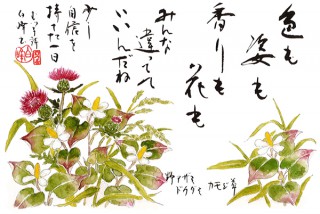 色も
姿も
香りも
花も
みんな
違って
いいんだね
少し
自信を
持った一日
カモジ草
野アザミ
ドクダミ